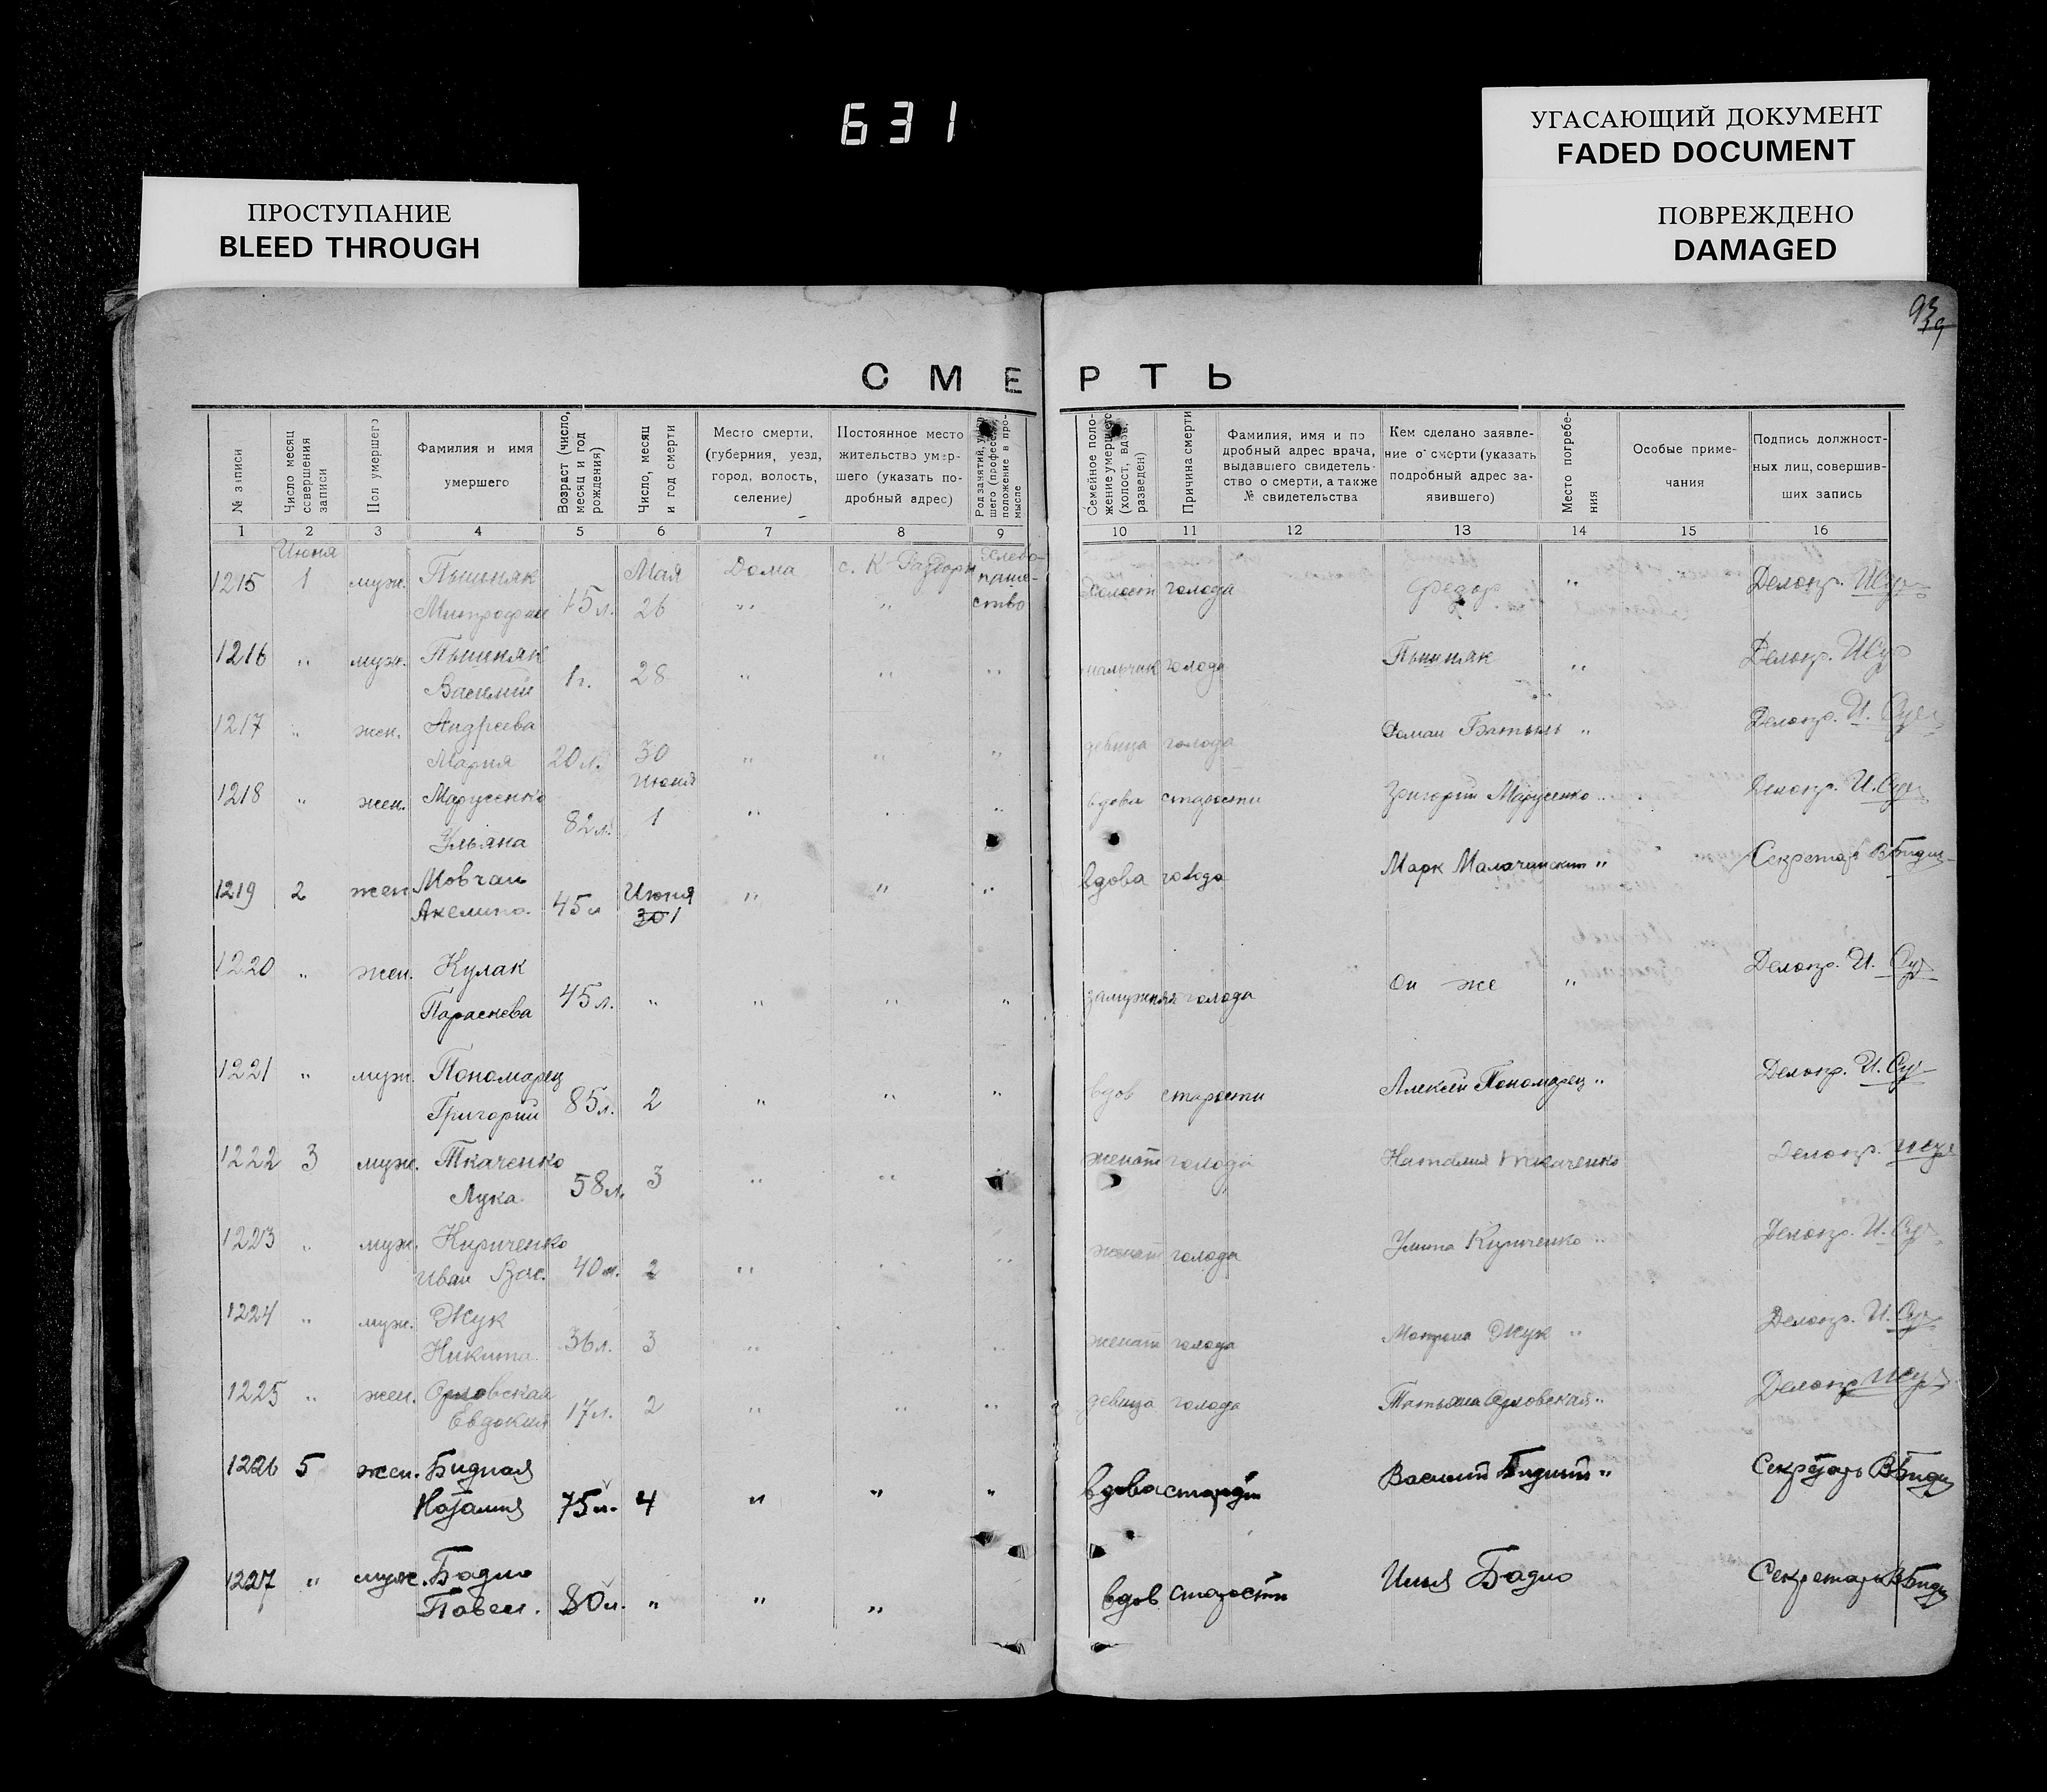 631
ПРОСТУПАНИЕ
BLEED THROUGH
УГАСАЮЩИЙ ДОКУМЕНТ
FADED DOCUMENT
ПОВРЕЖДЕНО
DAMAGED
93
СМЕРТЬ
№ записи
Число месяц совершения записи
Пол умершего
Фамилия и имя умершего
Возраст (число, месяц и год рождения)
Число, месяц и год смерти
Место смерти, (губерния, уезд, город, волость, селение)
Постоянное место жительство умершего (указать подробный адрес)
Род занятий, умершего (профессия, положение в промысле
Семейное положение умершего (холост, вдов, разведен)
Причина смерти
Фамилия, имя и подробный адрес врача, выдавшего свидетельство о смерти, а также № свидетельства
Кем сделано заявление о смерти (указать подробный адрес заявившего)
Место погребения
Особые примечания
Подпись должностных лиц, совершивших запись
1 2 3 4 5 6 7 8 9 10 11 12 13 14 15 16
Июня
1215 1 муж. Пышняк Митрофан 15 л. Мая 26 Дома с. К Раздоры Хлебопашество холост голода Федор " Делопр.
1216 " муж. Пышняк Василий 1 г. 28 " " " мальчик голода Пышняк " Делопр.
1217 " жен. Андреева Мария 20 л. 30 " " " девица голода Роман " Делопр. И.
1218 " жен. Марусенко Ульяна 82 л. Июня 1 " " " вдова старости Григорий Марусенко " Делопр. И.
1219 2 жен Мовчан Акелина 45 л Июня 30 1 " " " вдова голода Марк " Секретарь
1220 " жен. Кулак Параскева 45 л. " " " " замужняя голода Он же " Делопр. И.
1221 " муж. Пономарец Григорий 85 л. 2 " " " вдов старости Алексей Пономарец " Делопр. И.
1222 3 муж. Ткаченко Лука 58 л. 3 " " женат голода Наталия Ткаченко Делопр.
1223 " муж. Кириченко Иван Вас. 40 л. 2 " " " женат голода Улита Кириченко " Делопр. И.
1224 " муж. Жук Никита 36 л. 3 " " " женат голода Матрена Жук " Делопр. И.
1225 " жен. Орловская Евдокия 17 л. 2 " " " девица голода Татьяна Орловская " Делопр.
1226 5 жен. Бидная Наталия 75 л. 4 " " " вдова старости Василий Бидный " Секретарь
1227 " муж. Бадло Павел. 80 л. " " " вдов старости Илья Бадло Секретарь